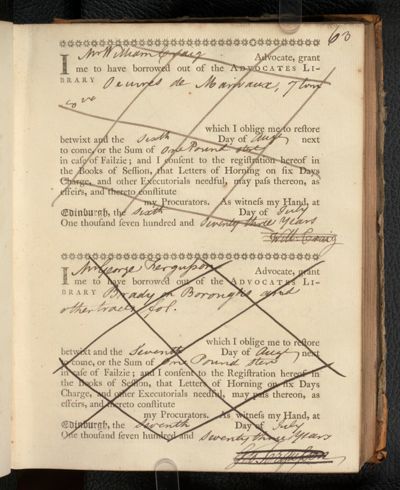 63
I Mr William Craig Advocate, grant
me to have borrowed out of the ADVOCATES LI-
BRARY Oeuvres de Marivaux, 7 tom
betwixt and the sixth which I oblige me to reſtore
Day of Augt next
to come, or the Sum of One Pound ster
in caſe of Failzie; and I conſent to the regiſtration hereof in
the Books of Seſſion, that Letters of Horning on ſix Days
Charge, and other Executorials needful, may paſs thereon, as
effeirs, and thereto conſtitute
my Procurators. As witneſs my Hand, at
Edinburgh, the Sixth Day of July
One thouſand ſeven hundred and seventy three Years
Will: Craig
I Mr George Ferguſson Advocate, grant
me to have borrowed out of the ADVOCATES LI-
BRARY Brady on Boroughs and
other tracts fol.
which I oblige me to reſtore
betwixt and the Seventh Day of Augt next
to come, or the Sum of One Pound ster
in caſe of Failzie; and I conſent to the Regiſtration hereof in
the Books of Seſſion, that Letters of Horning on ſix Days
Charge, and other Executorials needful, may paſs thereon, as
effeirs, and thereto conſtitute
my Procurators. As witneſs my Hand, at
Edinburgh, the Seventh Day of July
One thouſand ſeven hundred and seventy three Years